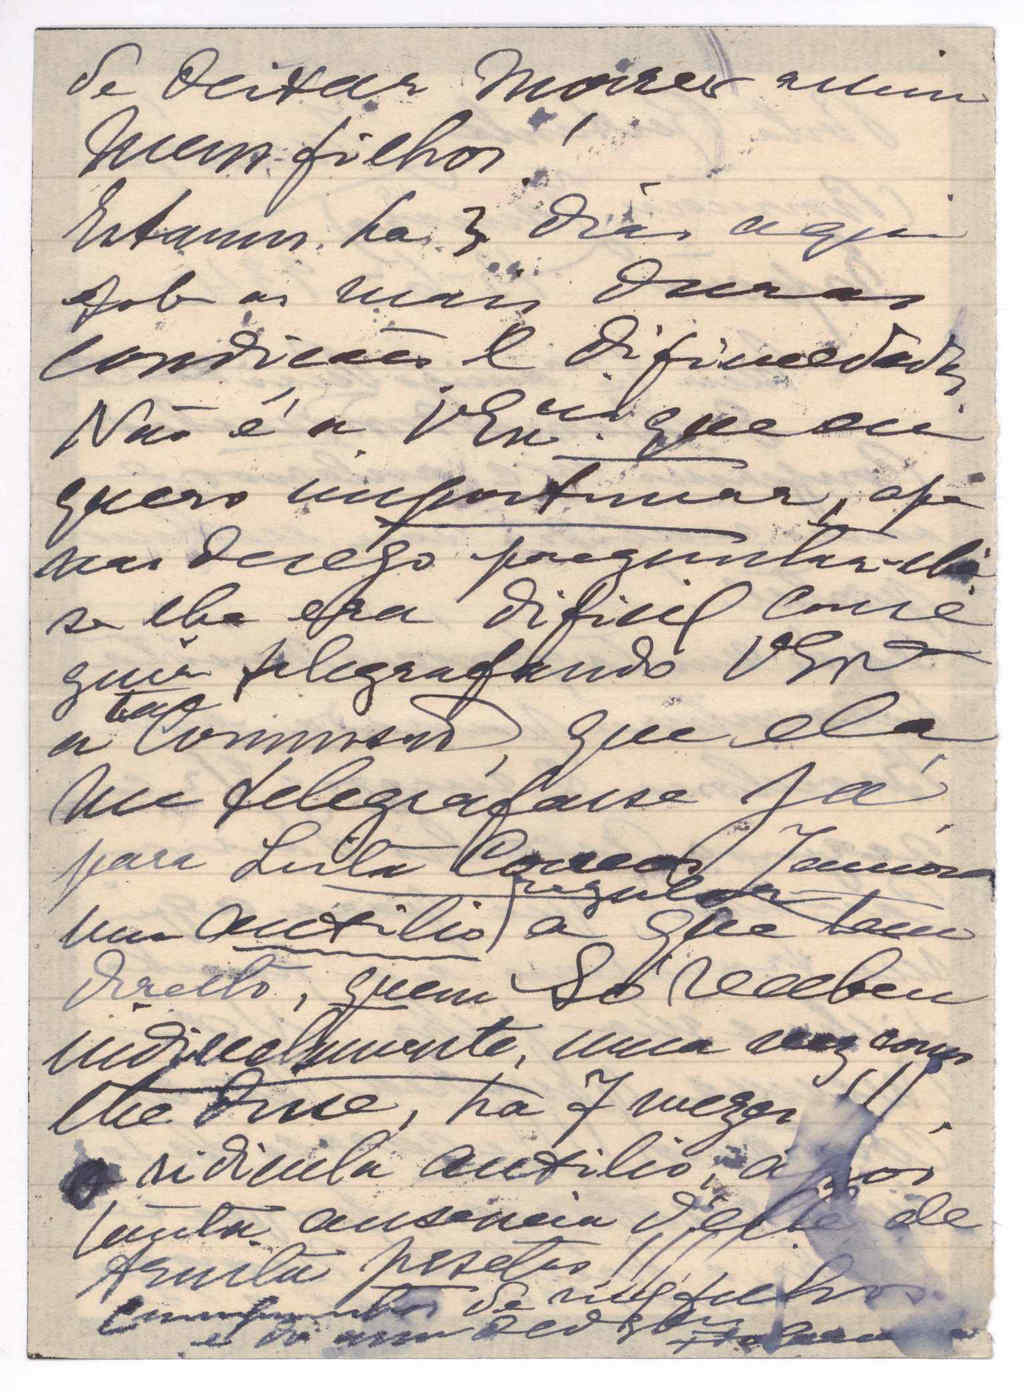 de deixar morrer assim
meus filhos!
Estamos ha 3 dias aqui
sob as mais duras
condicões e dificuedades
Não é a VExcia. que eu
quero importunar, ape
nas desejo preguntar-lhe
se lhe era dificil conse
guir telegrafando VExa
a tal Commissão, que ela
me telegrafasse já
para Lista Correos Zamora
um auxilio regular a que tem
direito, quem só recebeu
indirectmente, uma vez como
lhe disse, ha 7 mezes
o ridiculo auxilio, após
tanta ausencia d'elle de
trinta pesetas!!!
Cumprimentos de meus filhos
e do